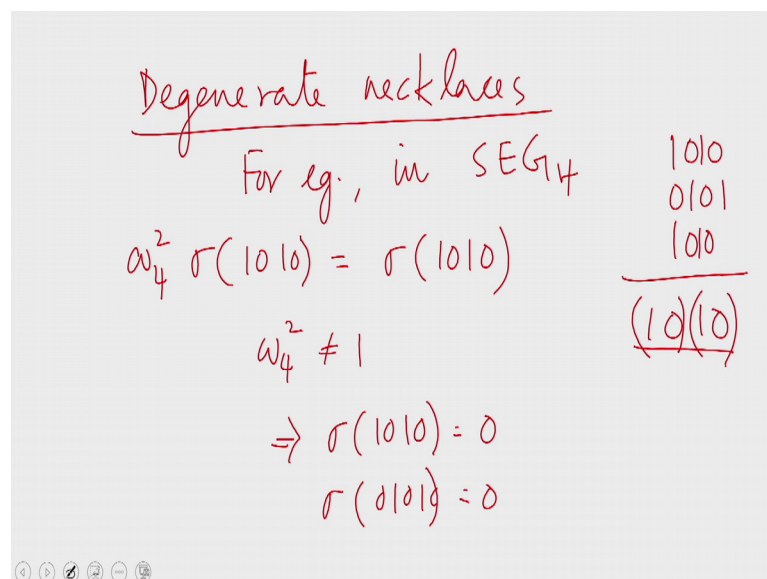 Degenerate necklaces
For eg., in SEG₄
ω₄² σ(1010) = σ(1010)
ω₄² ≠ 1
⇒ σ(1010) = 0
σ(0101) = 0
1010
0101
1010
(10)(10)